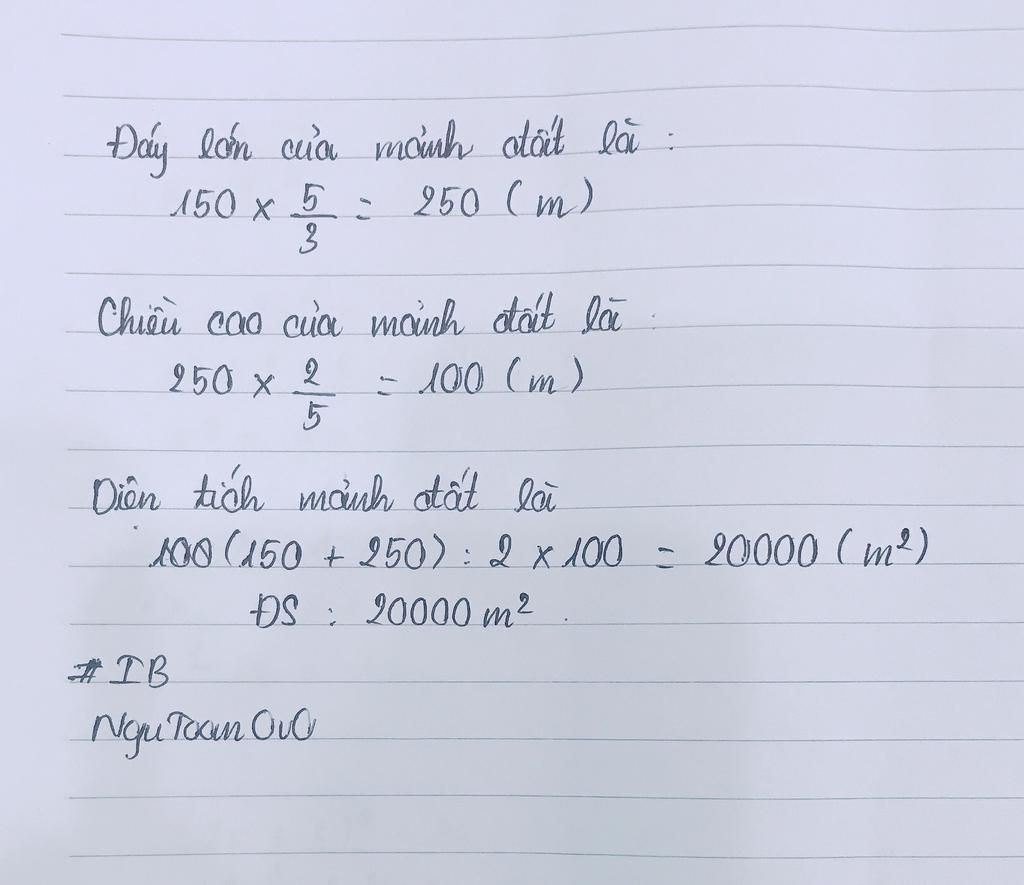 Đáy lớn của mảnh đất là :
150 × 5/3 = 250 (m)
Chiều cao của mảnh đất là :
250 × 2/5 = 100 (m)
Diện tích mảnh đất là
100 (150 + 250) : 2 × 100 = 20000 (m²)
ĐS : 20000 m² .
# IB
NguToanOvO